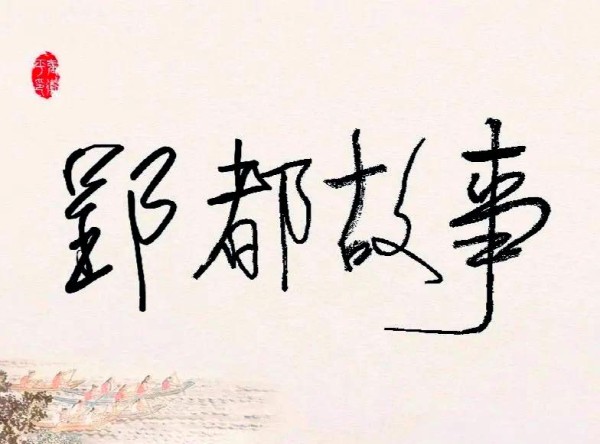 郢都故事